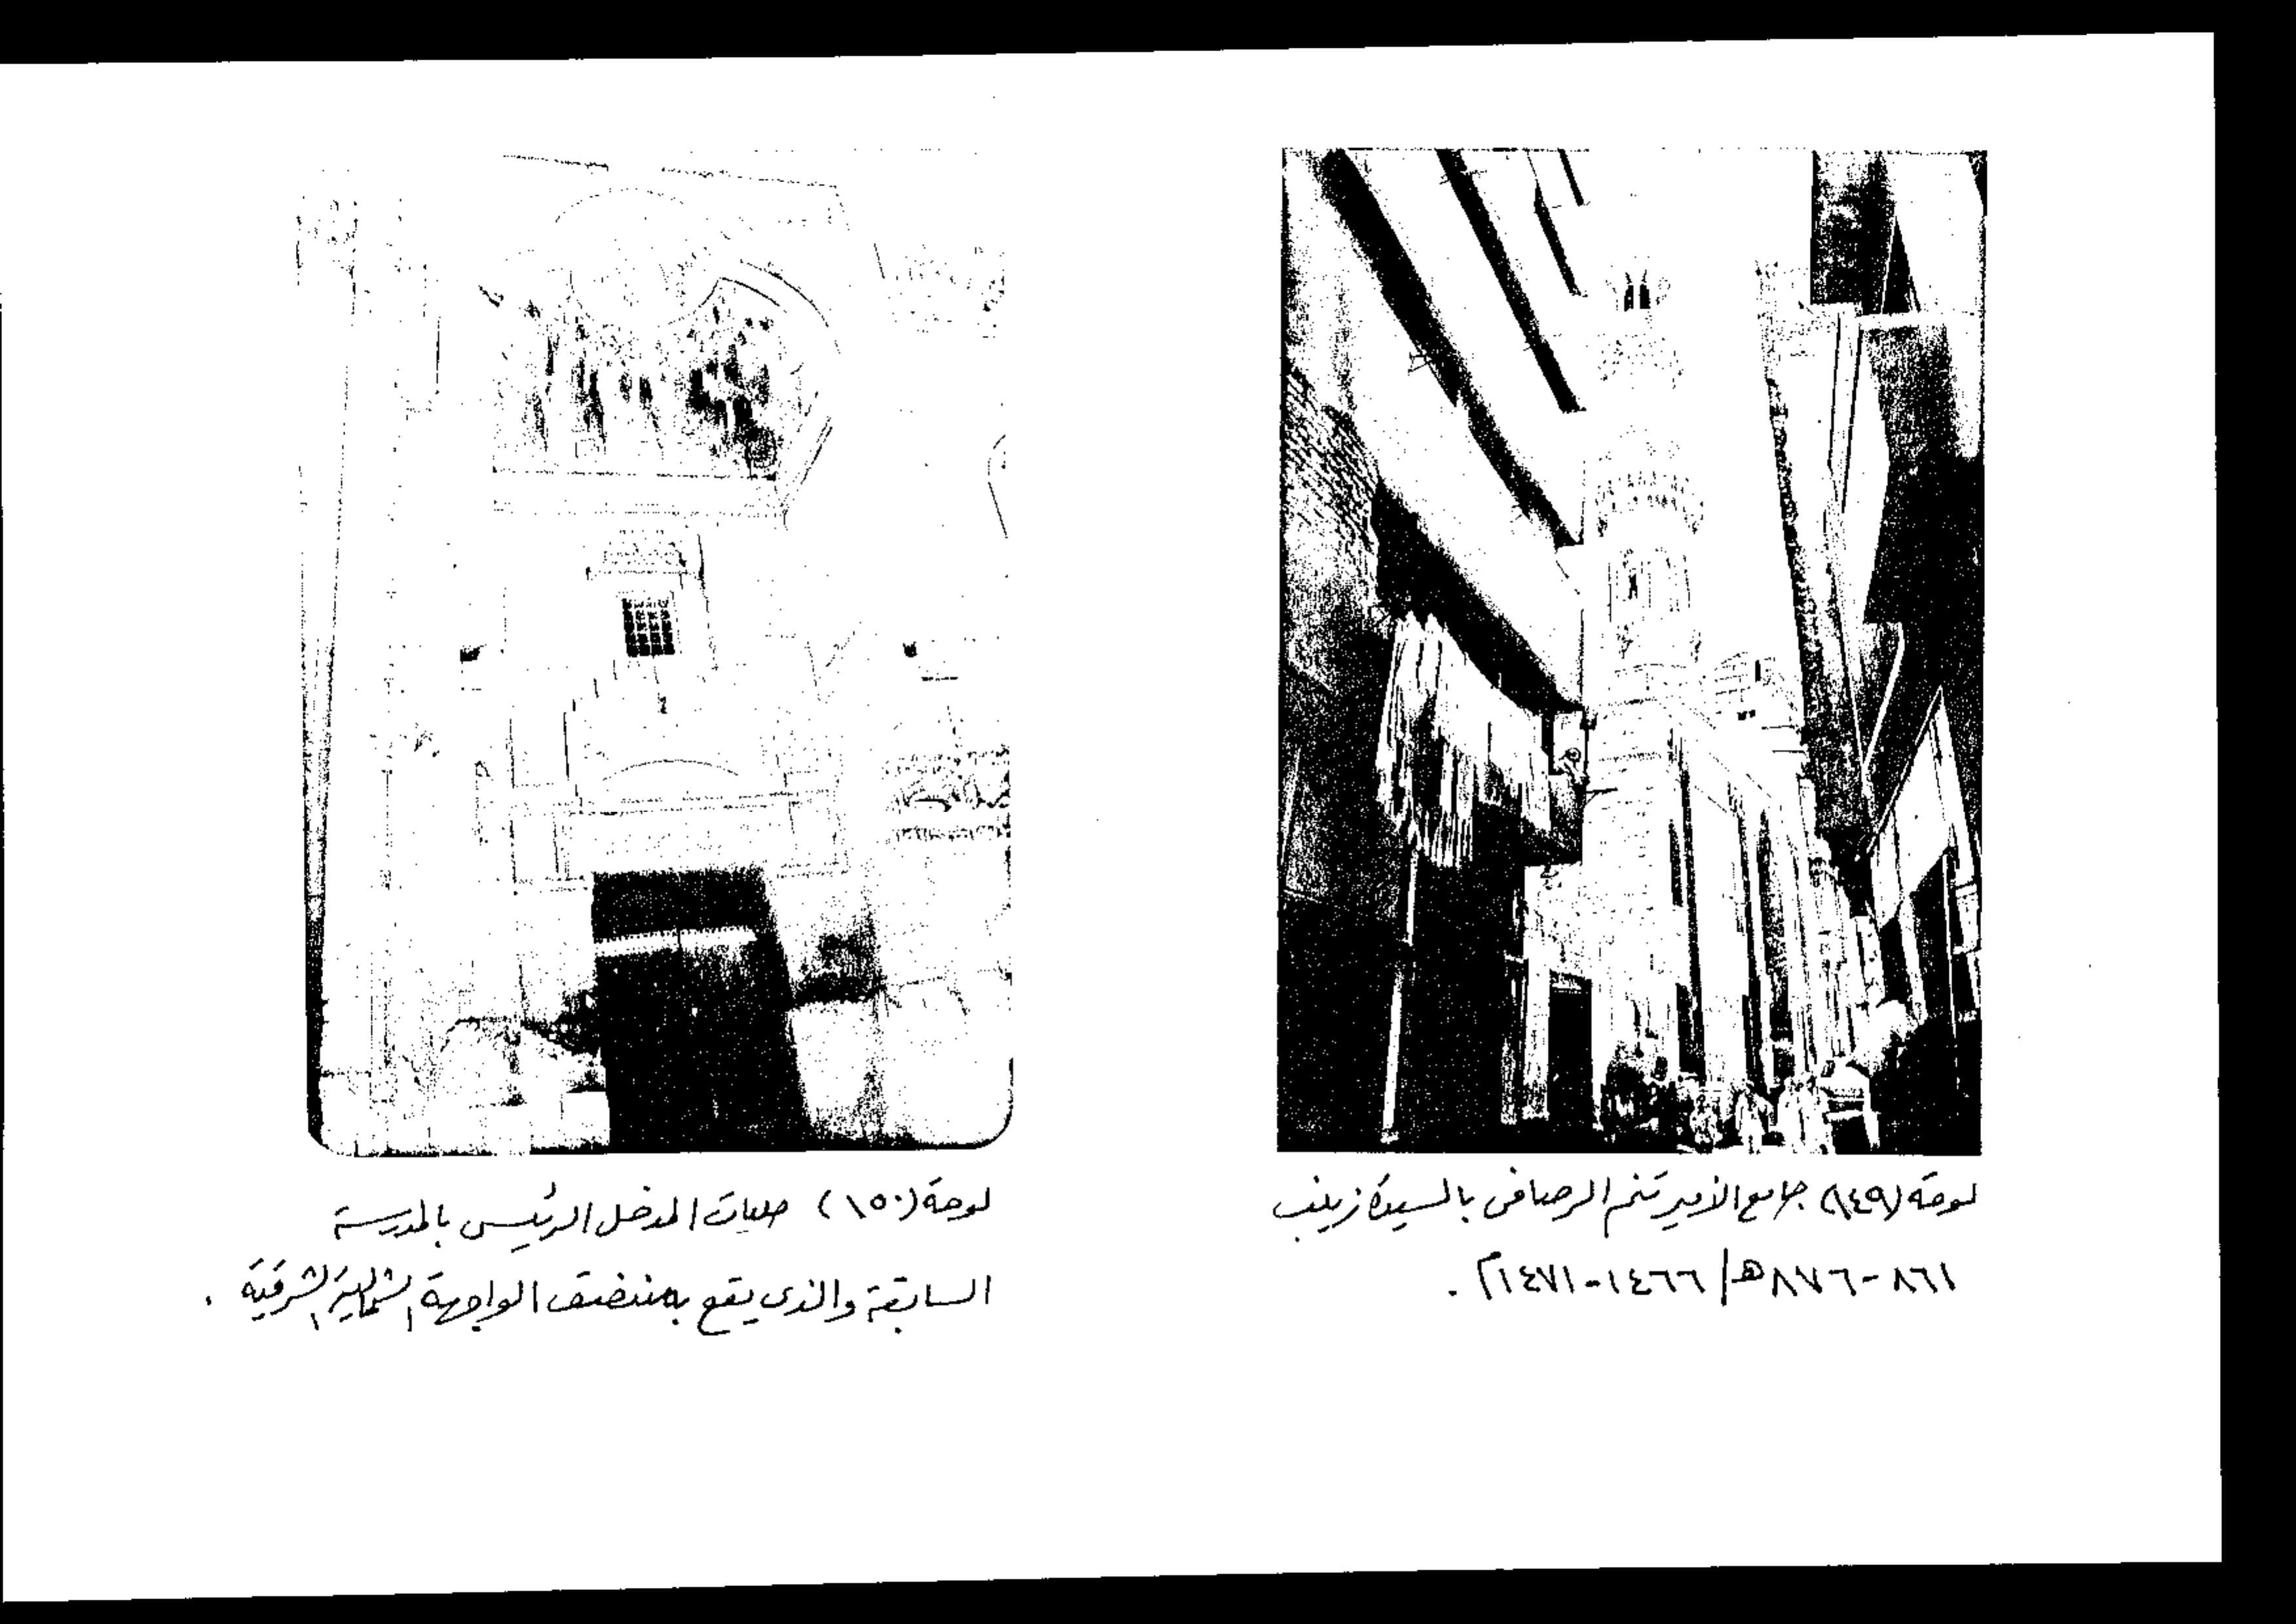 لوحة (١٤٩) جامع الأمير تنم الرصافى بالسيدة زينب
٨٦١-٨٧٦هـ/ ١٤٦٦-١٤٧١م .
لوحة (١٥٠) المدخل الرئيسى بالمدرسة
السابقة والذى يقع بمنتصف الواجهة الشمالية الشرقية .